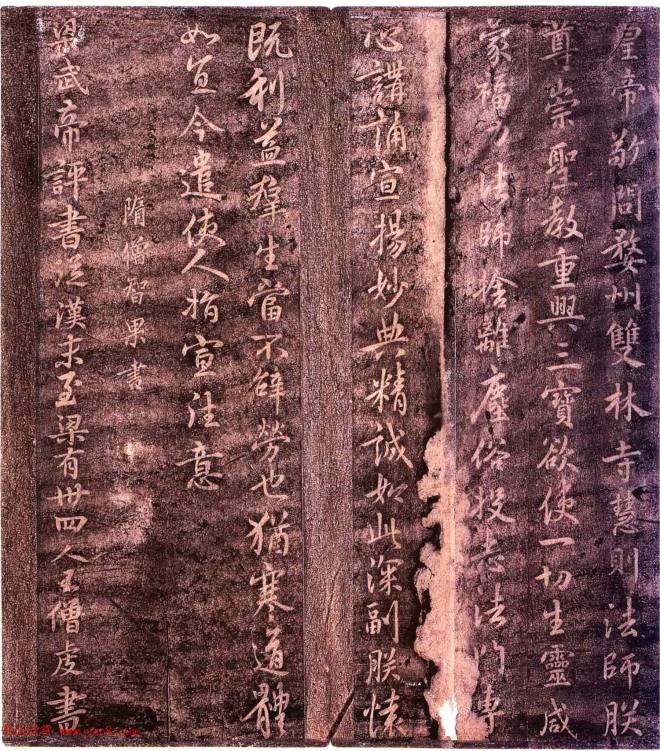 皇帝敬問婺州雙林寺慧則法師朕
尊崇聖教重興三寶欲使一切生靈咸
蒙福力法師捨離塵俗投志法門專
心講誦宣揚妙典精誠如此深副朕懷
既利益群生當不辭勞也猶寒道體
如宜今遣使人指宣往意
隋僧智果書
梁武帝評書從漢末至梁有卅四人王僧虔書